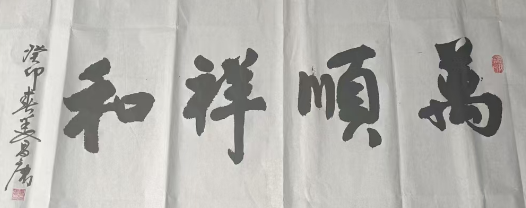 萬順祥和
癸卯春